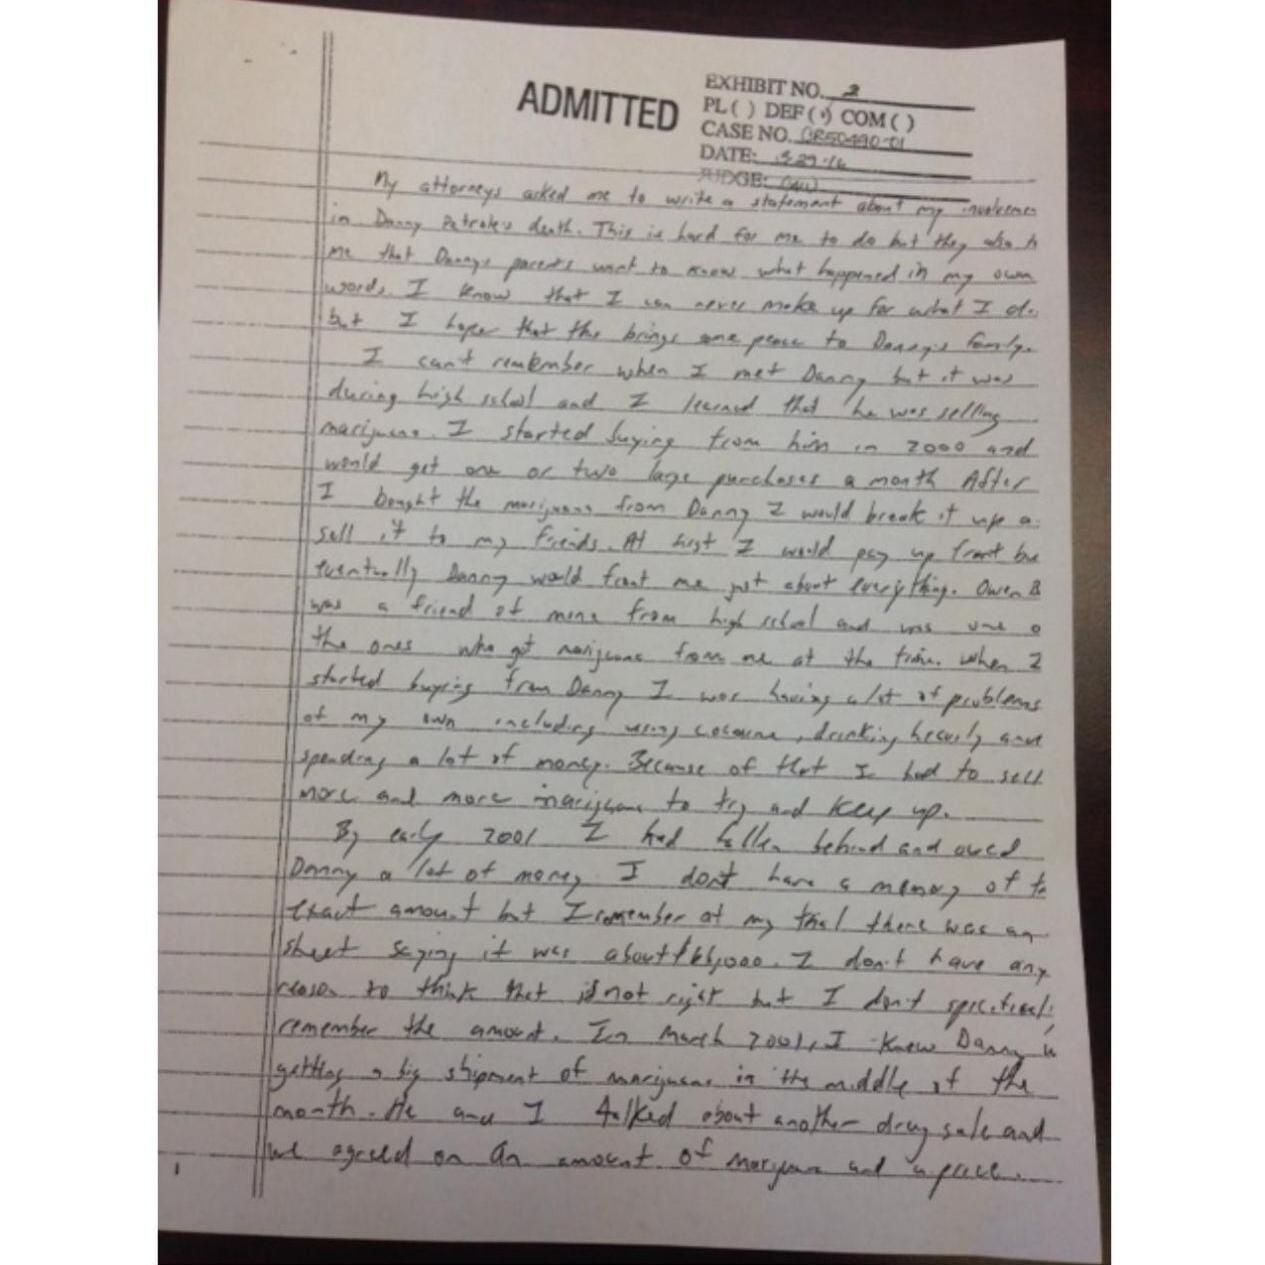 ADMITTED
EXHIBIT NO. 2
PL ( ) DEF ( ) COM ( )
CASE NO. CR50490-01
DATE: 3-29-16
JUDGE:
My attorneys asked me to write a statement about my involvemen
in Danny Petrole's death. This is hard for me to do but they also
me that Danny's parents want to know what happened in my own
words. I know that I can never make up for what I di
but I hope that this brings some peace to Danny's family.
I can't remember when I met Danny but it was
during high school and I learned that he was selling
marijuana. I started buying from him in 2000 and
would get one or two large purchases a month After
I bought the marijuana from Danny I would break it up a
sell it to my friends. At first I would pay up front bu
eventually Danny would front me just about everything. Owen B
was a friend of mine from high school and was one o
the ones who got marijuana from me at the time. When I
started buying from Danny I was having a lot of problems
of my own including using cocaine, drinking heavily and
spending a lot of money. Because of that I had to sell
more and more marijuana to try and keep up.
By early 2001 I had fallen behind and owed
Danny a lot of money I don't have a memory of
exact amount but I remember at my trial there was an
sheet saying it was about I don't have any
reason to think that is not right but I don't specificall
remember the amount. In March 2001, I knew Danny
getting a big shipment of marijuana in the middle of the
month. He and I talked about another drug sale and
we agreed on an amount of marijuana and a price.